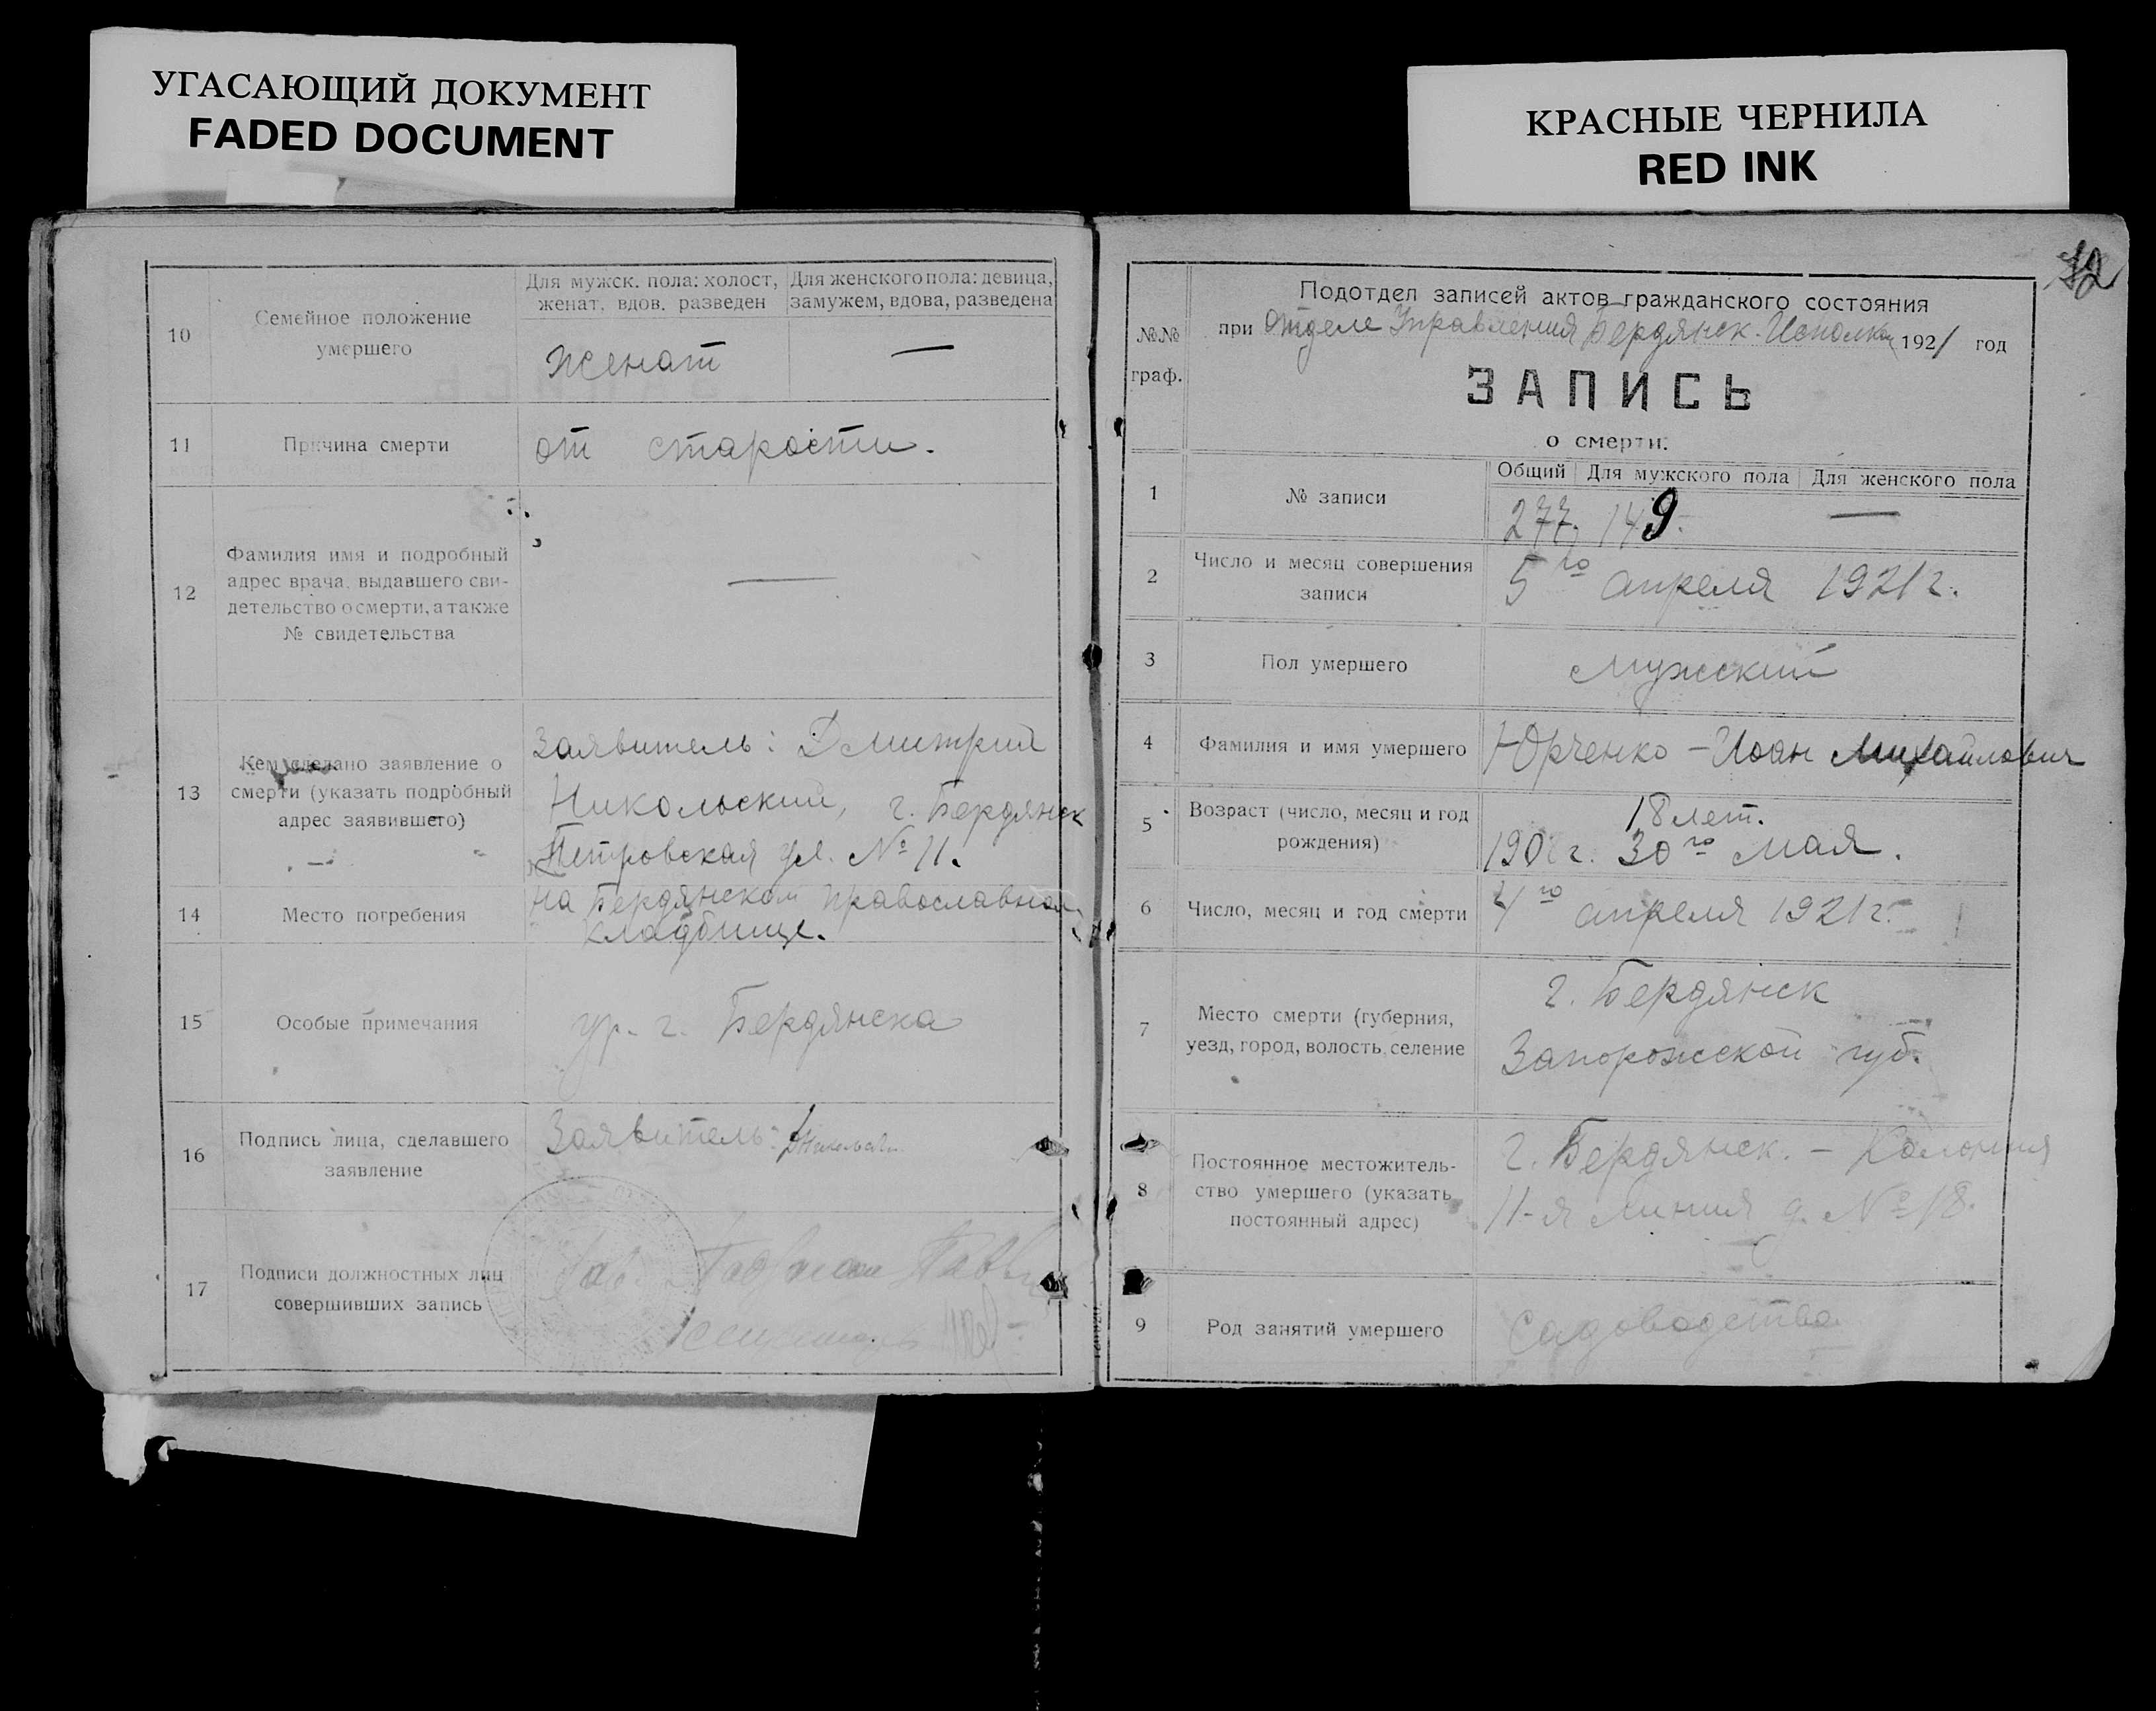 УГАСАЮЩИЙ ДОКУМЕНТ
FADED DOCUMENT
КРАСНЫЕ ЧЕРНИЛА
RED INK
10
Семейное положение
умершего
Для мужск. пола: холост,
женат, вдов, разведен
Для женского пола: девица,
замужем, вдова, разведена
женат
—
11
Причина смерти
от старости.
12
Фамилия имя и подробный
адрес врача, выдавшего сви-
детельство о смерти, а также
№ свидетельства
—
13
Кем сделано заявление о
смерти (указать подробный
адрес заявившего)
Заявитель: Дмитрий
Никольский, г. Бердянск
Петровская ул. № 11.
14
Место погребения
на Бердянском православном
кладбище.
15
Особые примечания
ур. г. Бердянска
16
Подпись лица, сделавшего
заявление
Заявитель:
17
Подписи должностных лиц
совершивших запись
Зав
72
№№
граф.
Подотдел записей актов гражданского состояния
при Отделе Управления Бердянск. Исполком 1921 год
ЗАПИСЬ
о смерти.
1
№ записи
Общий Для мужского пола Для женского пола
277. 149. —
2
Число и месяц совершения
записи
5го апреля 1921 г.
3
Пол умершего
Мужский
4
Фамилия и имя умершего
Юрченко — Иоан Михайлович
5
Возраст (число, месяц и год
рождения)
18 лет.
г. 30го мая.
6
Число, месяц и год смерти
4го апреля 1921 г.
7
Место смерти (губерния,
уезд, город, волость, селение
г. Бердянск
Запорожской губ.
8
Постоянное местожитель-
ство умершего (указать
постоянный адрес)
г. Бердянск. — Колония
11-я линия д. № 18.
9
Род занятий умершего
Садоводство